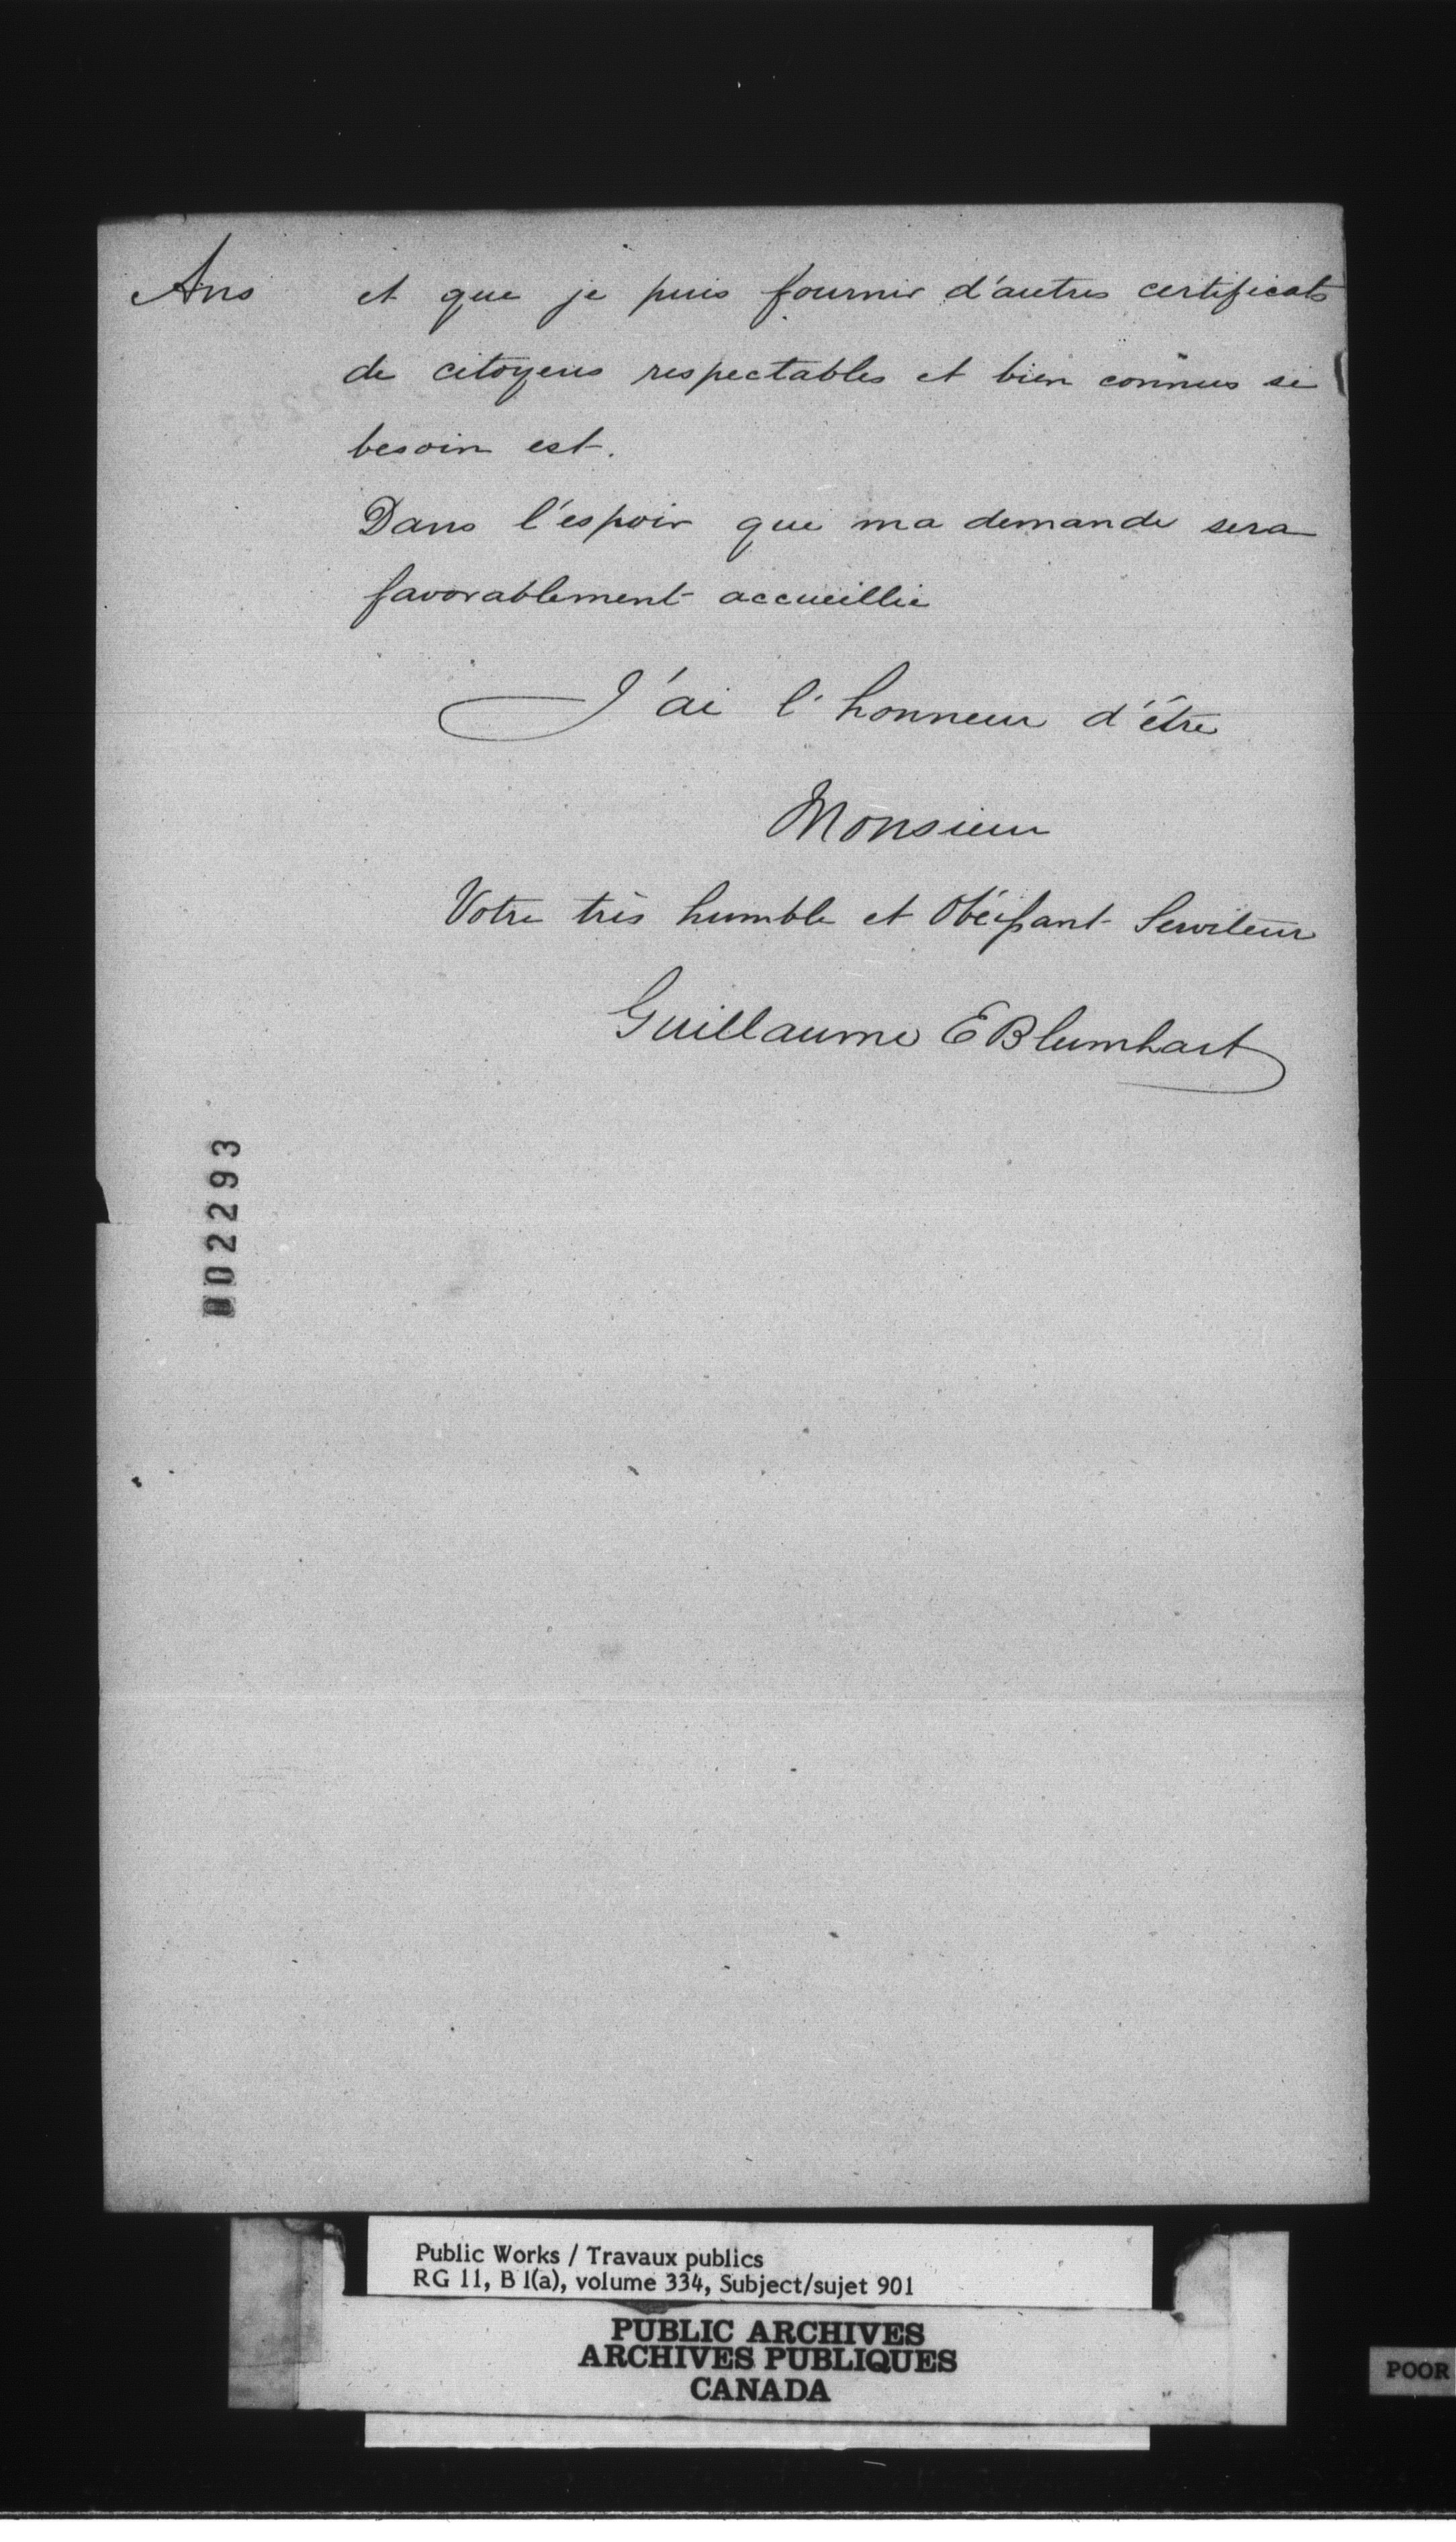 Ans
et que je puis fournir d'autres certificats
de citoyens respectables et bien connus si
besoin est.
Dans l'espoir que ma demande sera
favorablement accueillie
J'ai l'honneur d'être
Monsieur
Votre très humble et Obéissant Serviteur
Guillaume E Blumhart
002293
Public Works / Travaux publics
RG 11, B 1(a), volume 334, Subject/sujet 901
PUBLIC ARCHIVES
ARCHIVES PUBLIQUES
CANADA
POOR